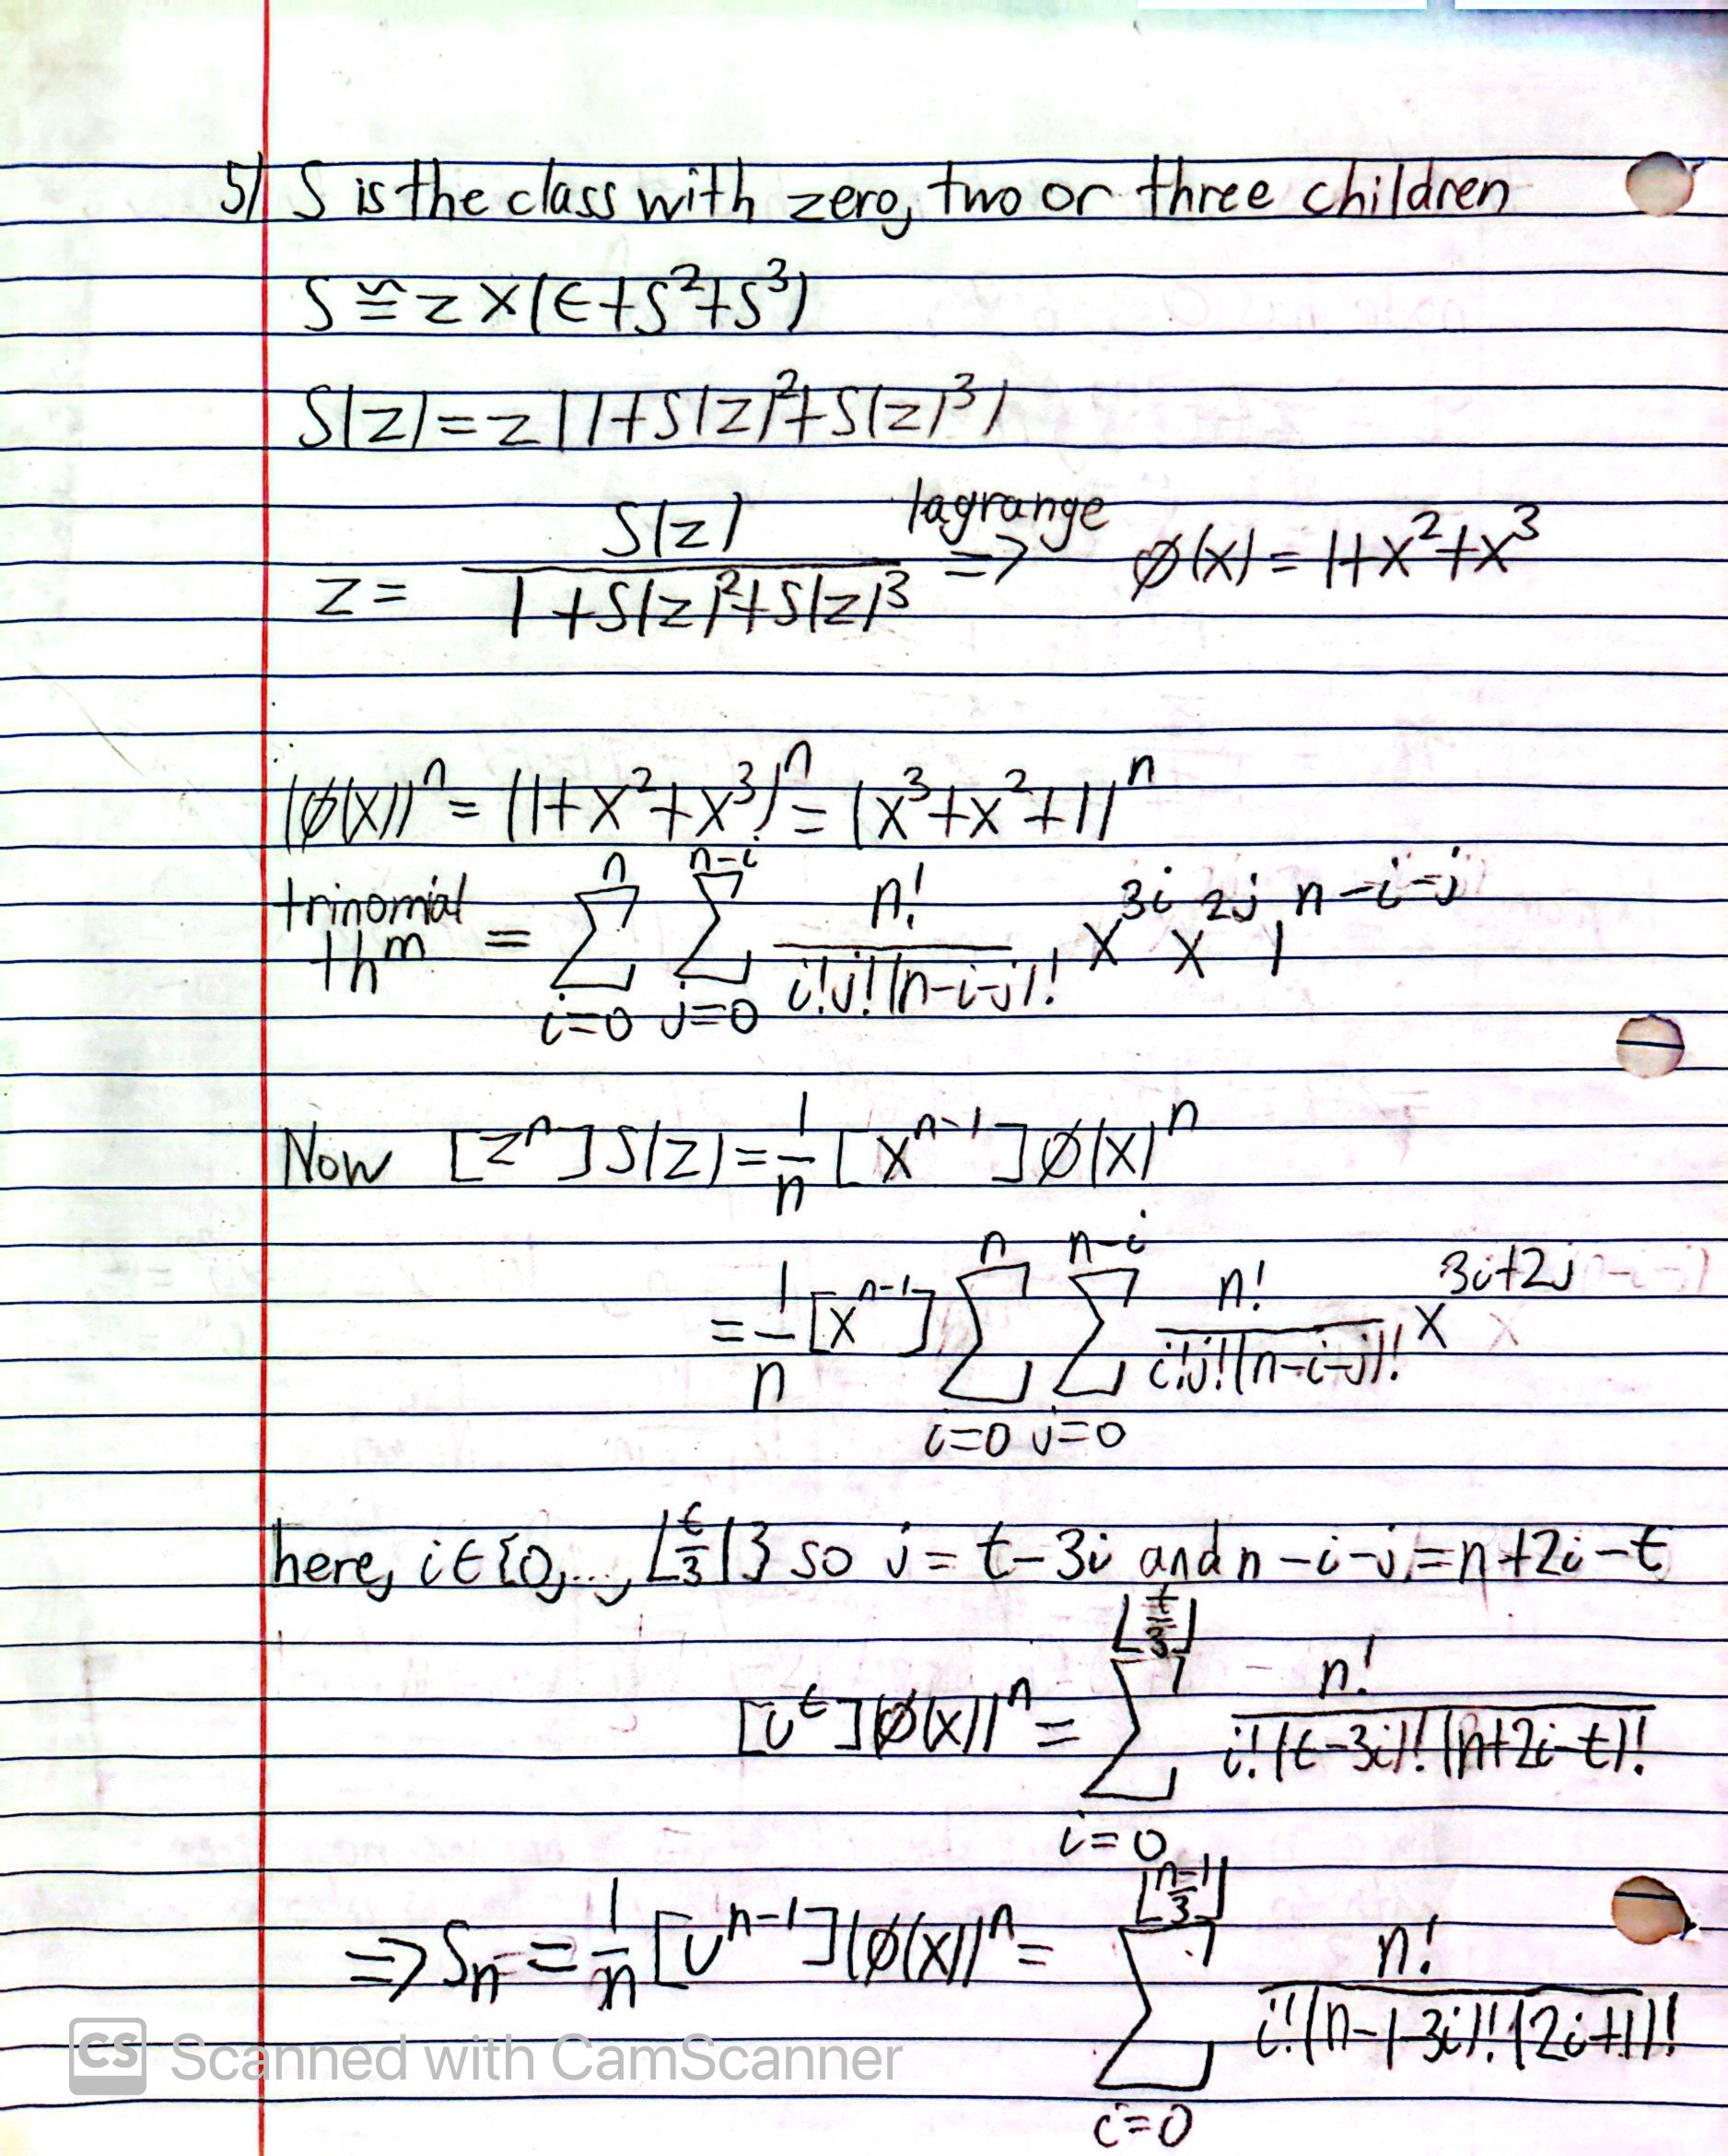 5) S is the class with zero, two or three children
S ≅ z × (ϵ + S² + S³)
S(z) = z(1 + S(z)² + S(z)³)
z = S(z) / (1 + S(z)² + S(z)³) lagrange => ø(x) = 1+x²+x³
(ø(x))^n = (1+x²+x³)^n = (x³+x²+1)^n
trinomial th^m = Σ_{i=0}^{n} Σ_{j=0}^{n-i} n! / (i!j!(n-i-j)!) x^{3i} x^{2j} 1^{n-i-j}
Now [z^n] S(z) = 1/n [x^{n-1}] ø(x)^n
= 1/n [x^{n-1}] Σ_{i=0}^{n} Σ_{j=0}^{n-i} n! / (i!j!(n-i-j)!) x^{3i+2j}
here, i ϵ {0,...,⌊t/3⌋} so j = t-3i and n-i-j = n+2i-t
[u^t] (ø(x))^n = Σ_{i=0}^{⌊t/3⌋} n! / (i!(t-3i)!(n+2i-t)!)
=> S_n = 1/n [u^{n-1}] (ø(x))^n = Σ_{i=0}^{⌊(n-1)/3⌋} n! / (i!(n-1-3i)!(2i+1)!)
CS Scanned with CamScanner